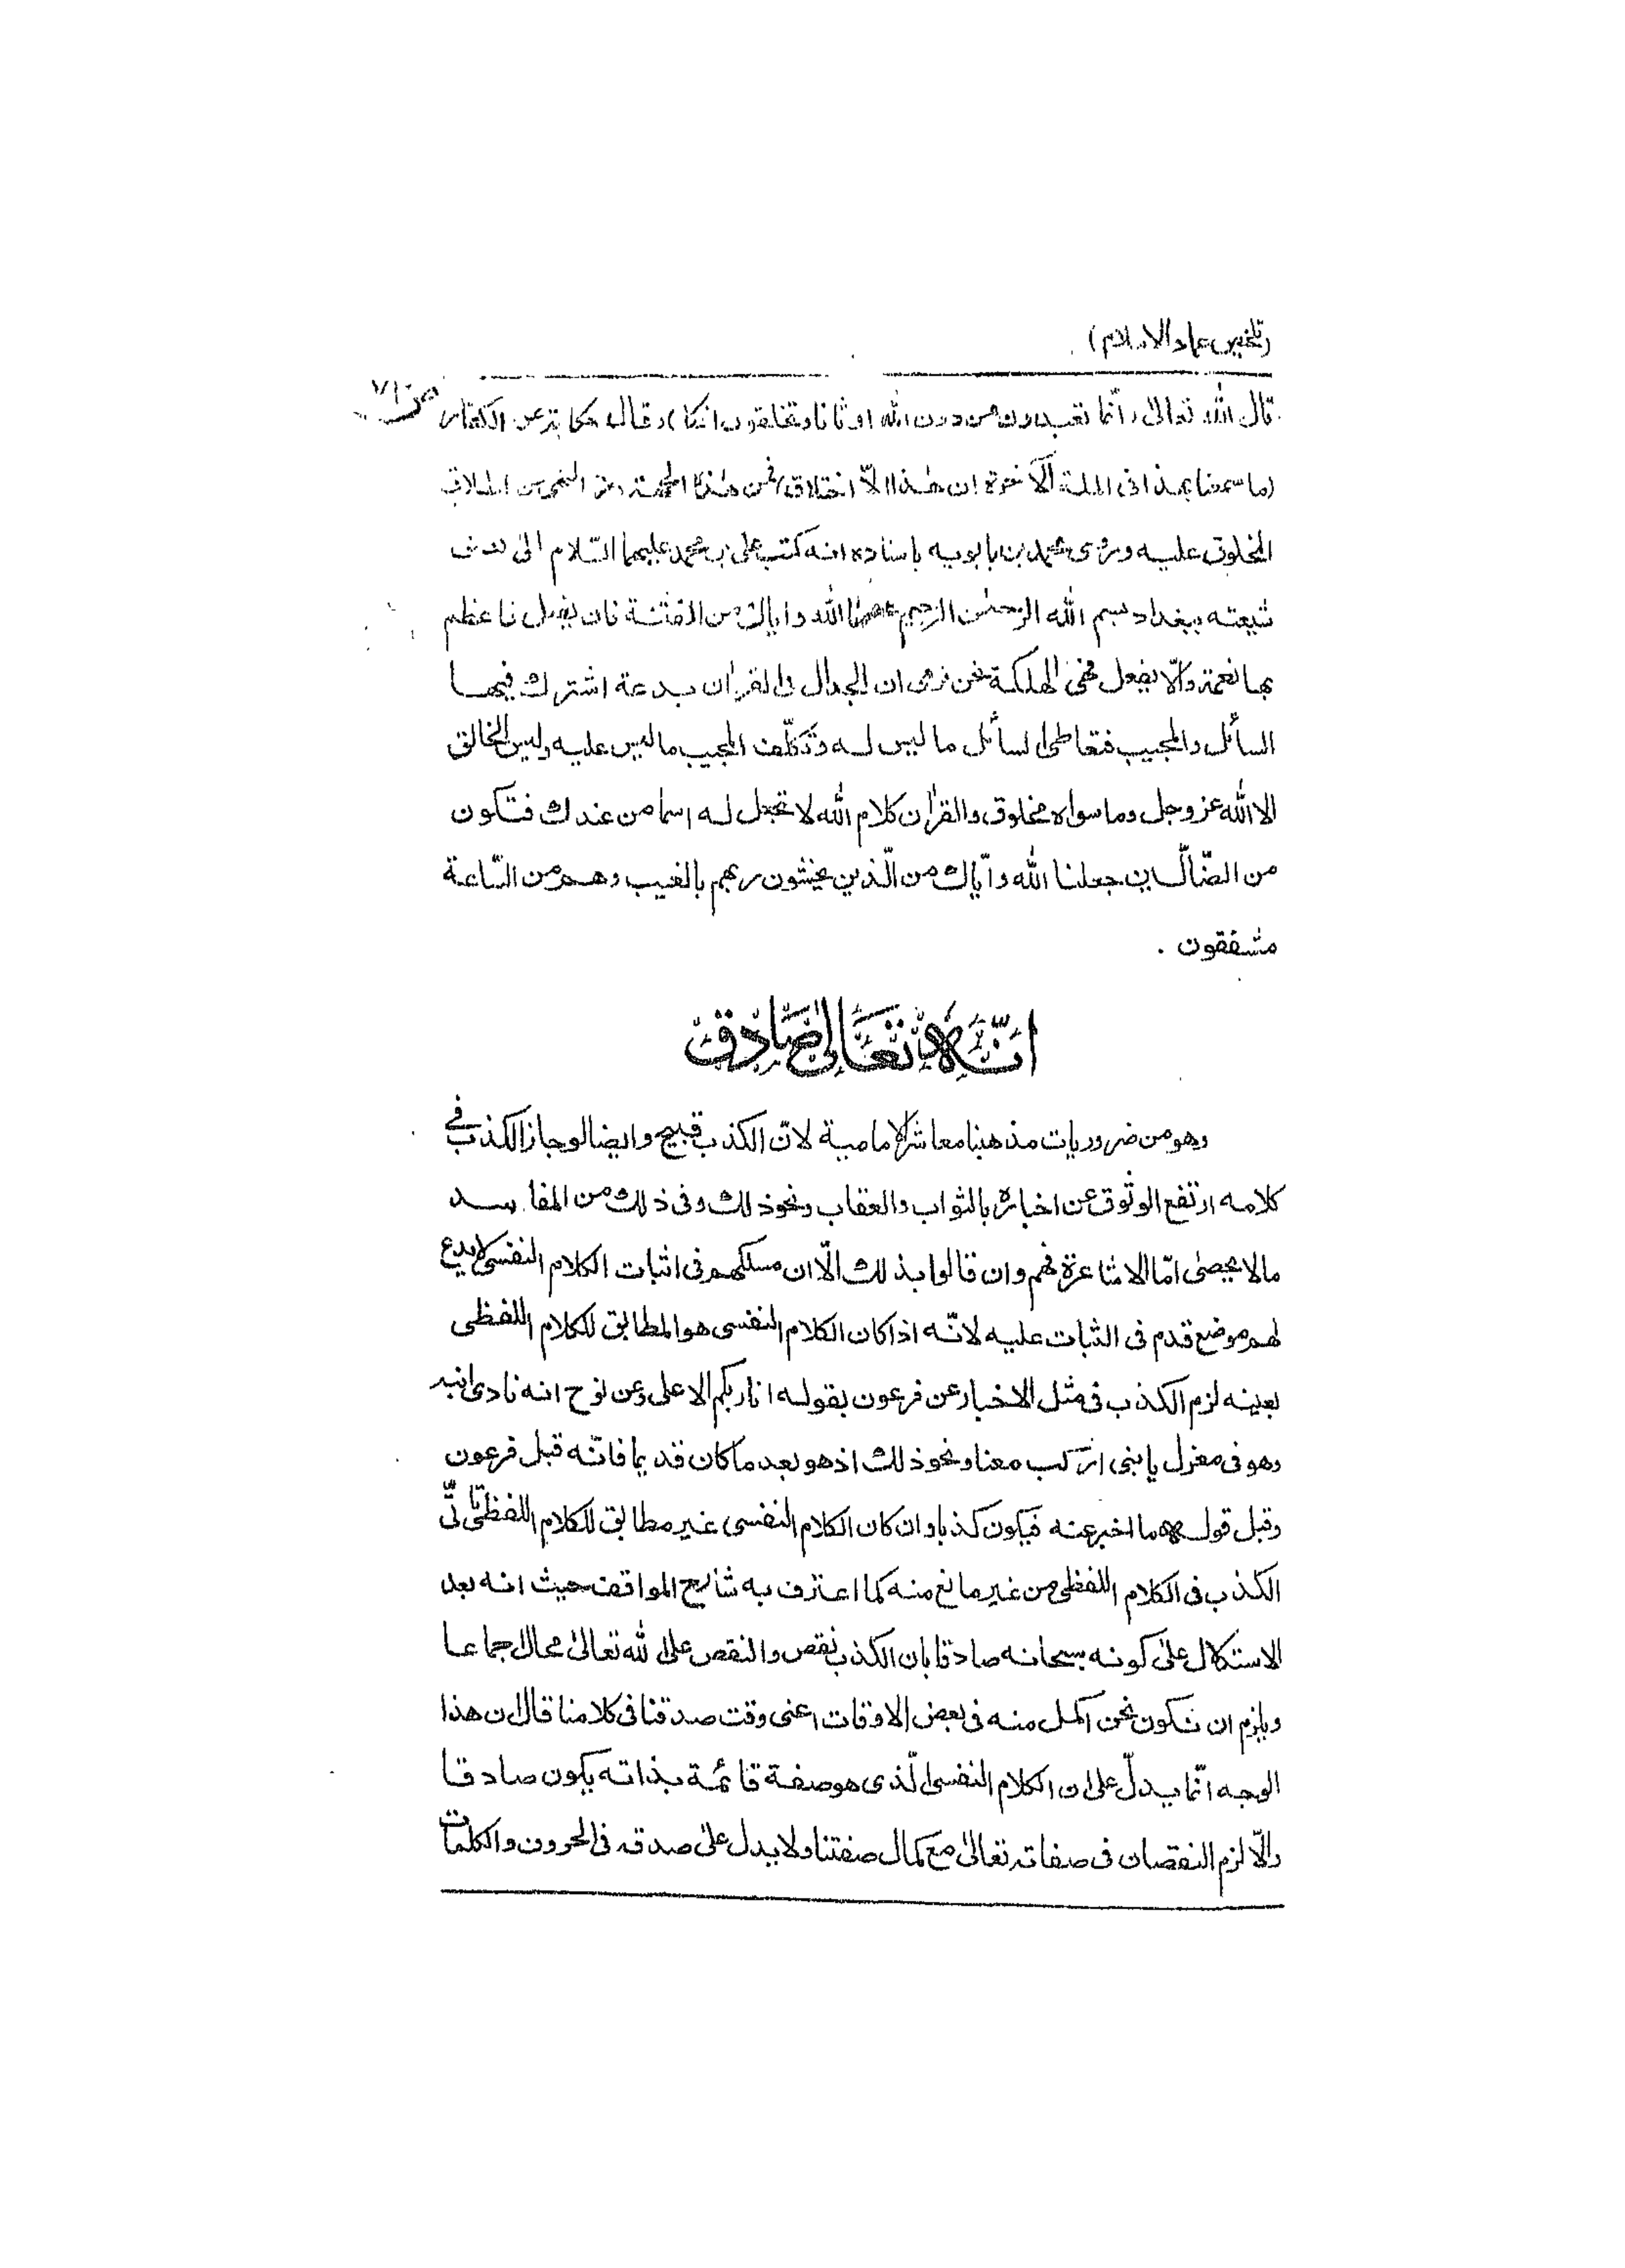 (تلخيص عماد الاسلام)
قال الله تعالى (انّما تعبدون من دون الله اوثانا وتخلقون افكا) وقال حكاية عن الكفار
(ما سمعنا بهذا فى الملة الآخرة ان هذا الاّ اختلاق) فمن هذه الجهة منع النهى عن اطلاق
المخلوق عليه وروى محمد بن بابويه باسناده انه كتب على بن محمد عليهما السّلام الى بعض
شيعته ببغداد بسم الله الرحمٰن الرحيم عصمنا الله واياك من الفتنة فان يفعل فاعظم
بها نعمة والّا يفعل فهى الهلكة نحن نرى ان الجدال فى القراٰن بدعة اشترك فيها
السائل والمجيب فتعاطى السائل ما ليس له وتكلّف المجيب ما ليس عليه وليس الخالق
الا الله عز وجل وما سواه مخلوق والقراٰن كلام الله لا تجعل له اسما من عندك فتكون
من الضّالّين جعلنا الله وايّاك من الّذين يخشون ربهم بالغيب وهم من السّاعة
مشفقون .
انّه تعالى صادق
وهو من ضروريات مذهبنا معاشر الامامية لانّ الكذب قبيح وايضا لو جاز الكذب فى
كلامه ارتفع الوثوق عن اخباره بالثواب والعقاب ونحو ذلك وفى ذلك من المفاسد
ما لا يحصىٰ امّا الاشاعرة فهم وان قالوا بذلك الّا ان مسلكهم فى اثبات الكلام النفسى لا يدع
لهم موضع قدم فى الثبات عليه لانّه اذا كان الكلام النفسى هو المطابق للكلام اللفظى
بعينه لزم الكذب فى مثل الاخبار عن فرعون بقوله انا ربكم الاعلى وعن نوح انه نادى ابنه
وهو فى معزل يا بنى اركب معنا ونحو ذلك اذ هو بعد ما كان قديما فانّه قبل فرعون
وقبل قوله ما اخبر عنه فيكون كذبا وان كان الكلام النفسى غير مطابق للكلام اللفظى تأتّى
الكذب فى الكلام اللفظى من غير مانع منه كما اعترف به شارح المواقف حيث انه بعد
الاستدلال على كونه سبحانه صادقا بان الكذب نقص والنقص على الله تعالىٰ محال اجماعا
ويلزم ان نكون نحن اكمل منه فى بعض الاوقات اعنى وقت صدقنا فى كلامنا قال ان هذا
الوجه انّما يدلّ على ان الكلام النفسى الّذى هو صفة قائمة بذاته يكون صادقا
والّا لزم النقصان فى صفاته تعالىٰ مع كمال صفتنا ولا يدل علىٰ صدقه فى الحروف والكلمات